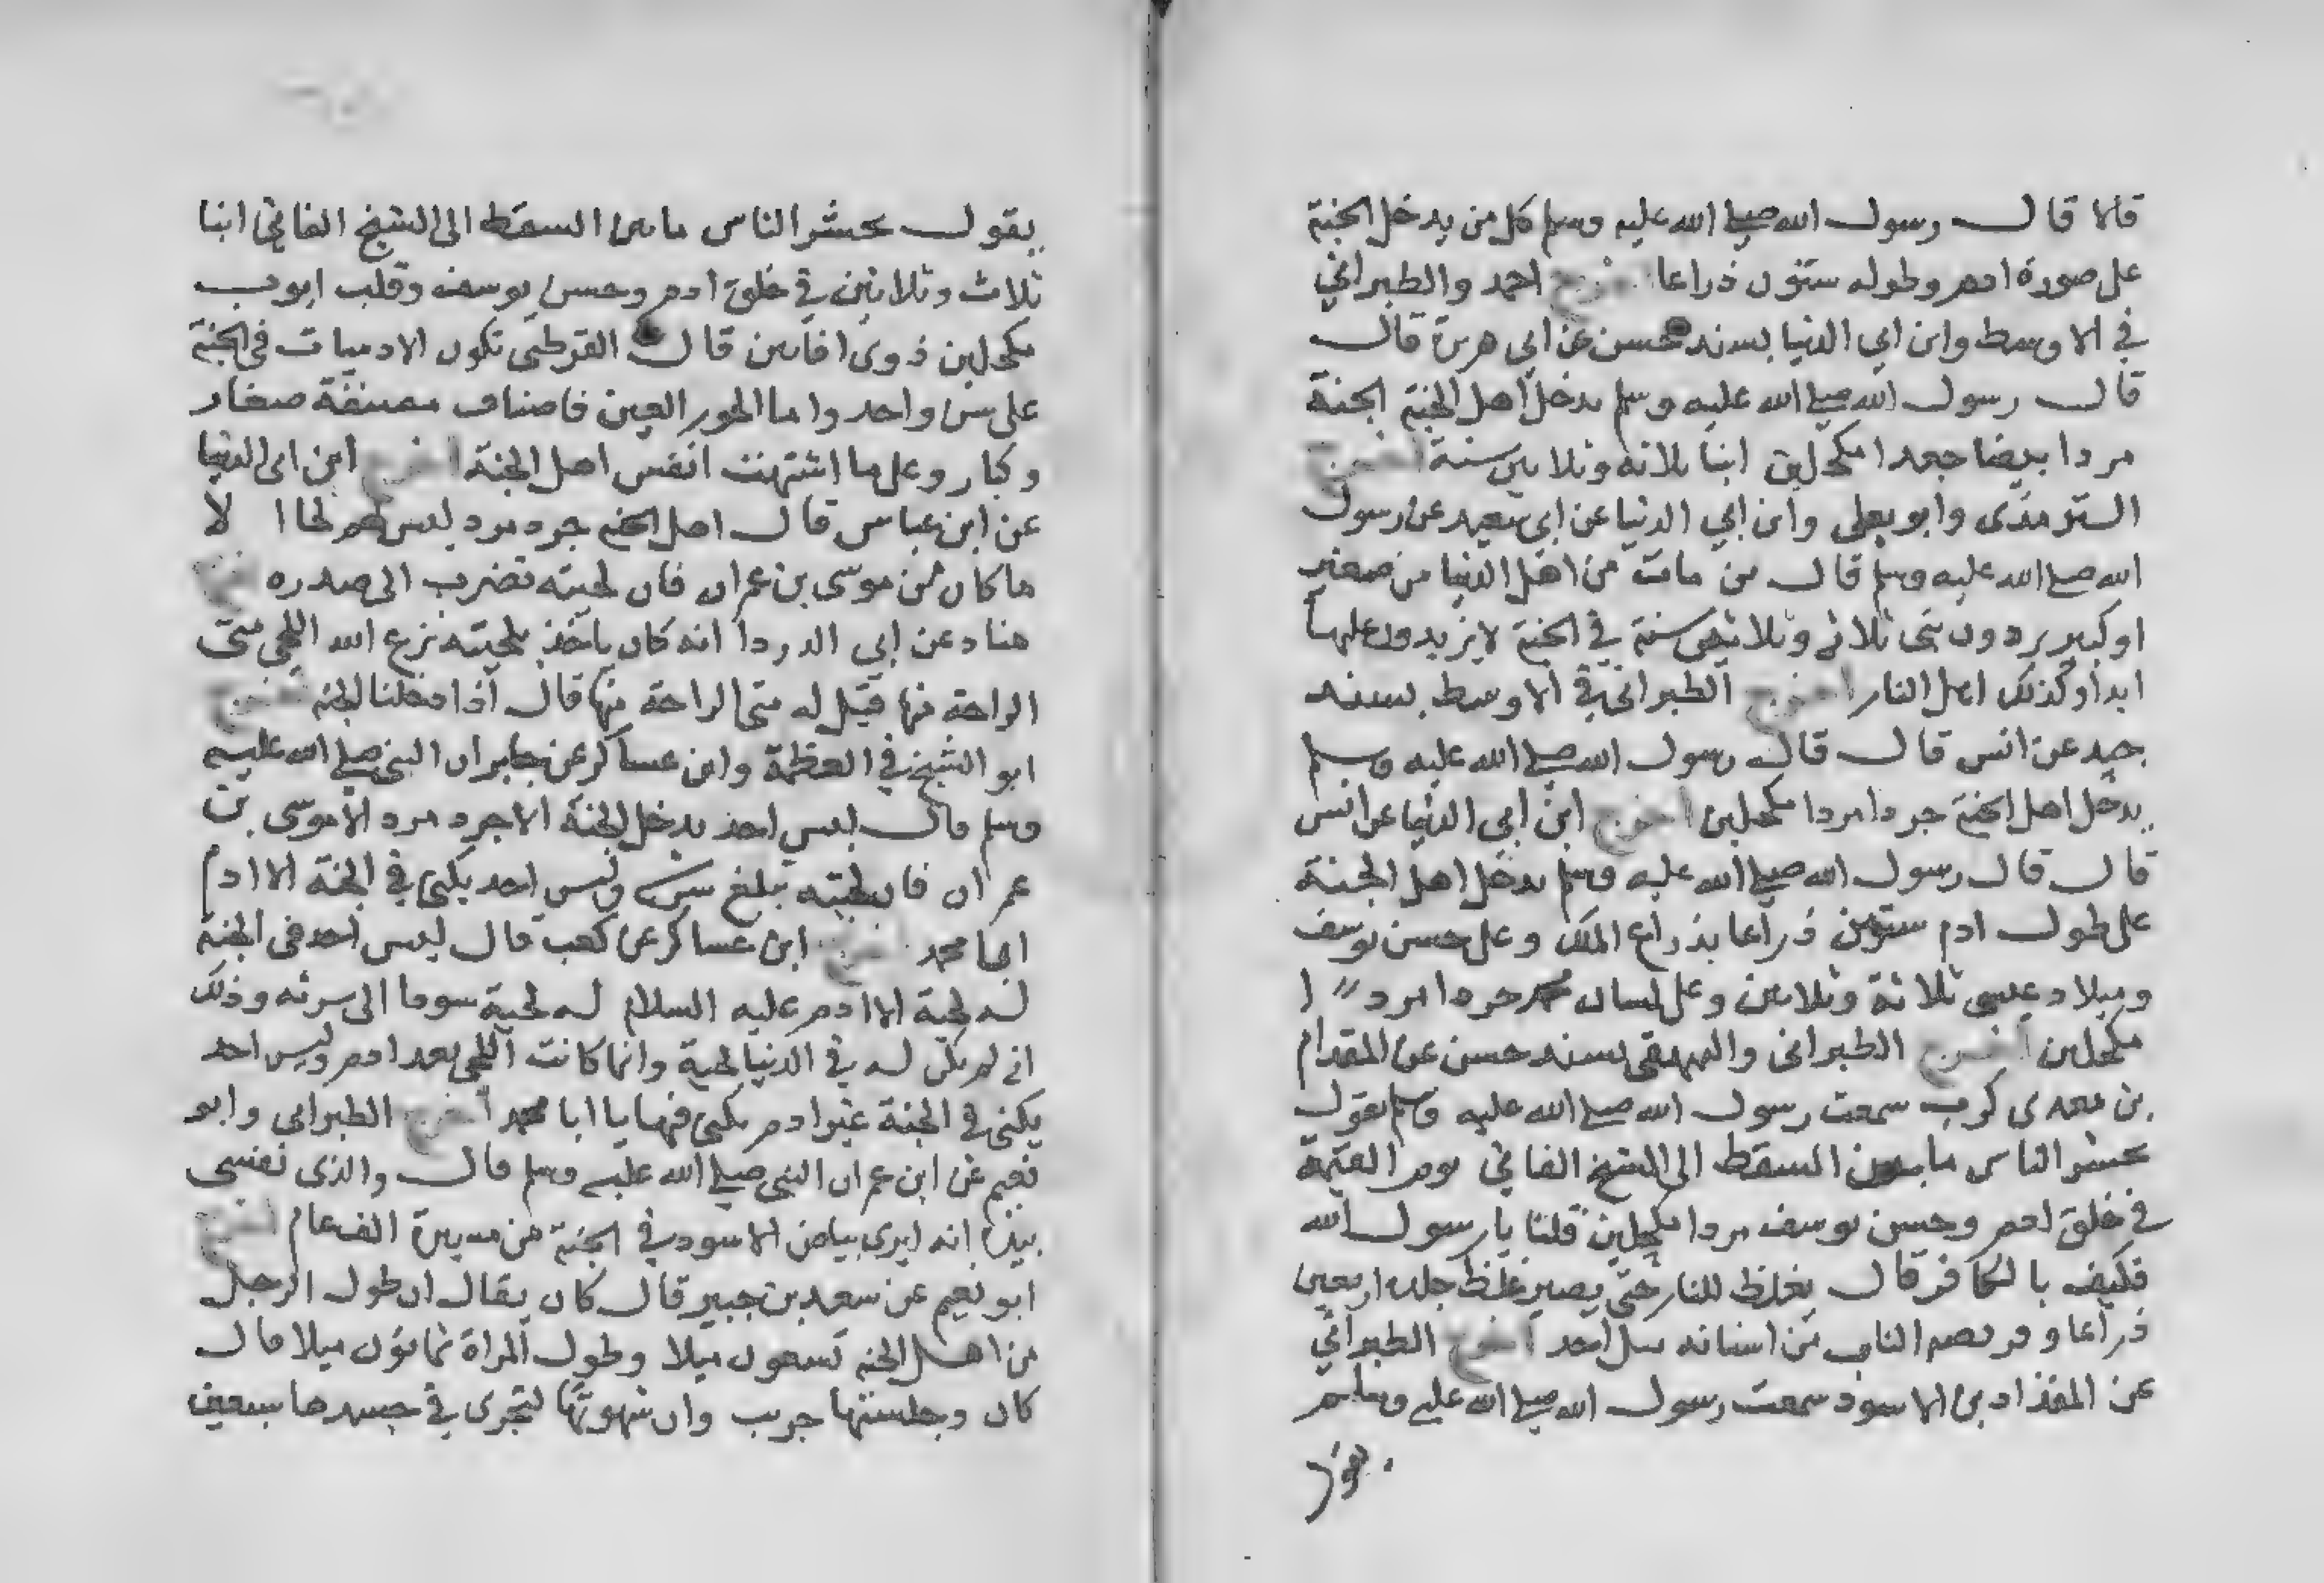 قالا قال رسول الله صلى الله عليه وسلم كل من يدخل الجنة
على صورة ادم وطوله ستون ذراعا اخرج احمد والطبراني
في الاوسط وابن ابي الدنيا بسند حسن عن ابي هريرة قال
قال رسول الله صلى الله عليه وسلم يدخل اهل الجنة الجنة
مردا بيضا جعدا مكحلين ابنا ثلاثة وثلاثين سنة اخرج
الترمذى وابو يعلى وابن ابي الدنيا عن ابي سعيد عن رسول
الله صلى الله عليه وسلم قال من مات من اهل الدنيا من صغير
او كبير يردون بنى ثلاثة وثلاثين سنة في الجنة لا يزيدون عليها
ابدا وكذلك اهل النار اخرج الطبراني في الاوسط بسند
جيد عن انس قال قال رسول الله صلى الله عليه وسلم
يدخل اهل الجنة جردا مردا مكحلين اخرج ابن ابي الدنيا عن انس
قال قال رسول الله صلى الله عليه وسلم يدخل اهل الجنة
على طول ادم ستون ذراعا بذراع الملك وعلى حسن يوسف
وميلاد عيسى ثلاثة وثلاثين وعلى لسان محمد جردا مردا
مكحلين اخرج الطبرانى والبيهقى بسند حسن عن المقدام
بن معدى كرب سمعت رسول الله صلى الله عليه وسلم يقول
يحشر الناس ما بين السقط الى الشيخ الفاني يوم القيمة
في خلق ادم وحسن يوسف مردا مكحلين قلنا يا رسول الله
فكيف بالكافر قال يغلظ للنار حتى يصير غلظ جلده اربعين
ذراعا و الناب من اسنانه مثل احد اخرج الطبراني
عن المقداد بن الاسود سمعت رسول الله صلى الله عليه وسلم
يقول
يقول يحشر الناس ما بين السقط الى الشيخ الفاني ابنا
ثلاث وثلاثين في خلق ادم وحسن يوسف وقلب ايوب
مكحلين ذوى افانين قال القرطبى تكون الادميات في الجنة
على سن واحد واما الحور العين فاصناف مصنفة صغار
وكبار وعلى ما اشتهت انفس اهل الجنة اخرج ابن ابى الدنيا
عن ابن عباس قال اهل الجنة جرد مرد ليس لهم لحا الا
ما كان من موسى بن عمران فان لحيته تضرب الى صدره اخرج
هناد عن ابي الدردا انه كان ياخذ بلحيته نزع الله اللحى متى
الراحة منها قيل له متى الراحة منها قال اذا دخلنا الجنة اخرج
ابو الشيخ في العظمة وابن عساكر عن جابر ان النبى صلى الله عليه
وسلم قال ليس احد يدخل الجنة الا جرد مرد الا موسى بن
عمران فان لحيته تبلغ سرته وليس احد يكنى في الجنة الا ادم
ابا محمد اخرج ابن عساكر عن كعب قال ليس احد في الجنة
له لحية الا ادم عليه السلام له لحية سودا الى سرته وذلك
انه لم يكن له في الدنيا لحية وانما كانت اللحى بعد ادم وليس احد
يكنى في الجنة غير ادم يكنى فيها يا ابا محمد اخرج الطبراني وابو
نعيم عن ابن عمر ان النبى صلى الله عليه وسلم قال والذى نفسى
بيده انه ليرى بياض الاسود في الجنة من مسيرة الف عام اخرج
ابو نعيم عن سعيد بن جبير قال كان يقال ان طول الرجل
من اهل الجنة تسعون ميلا وطول المراة ثمانون ميلا قال
كان وجلستها جريب وان شهوتها لتجرى في جسدها سبعين